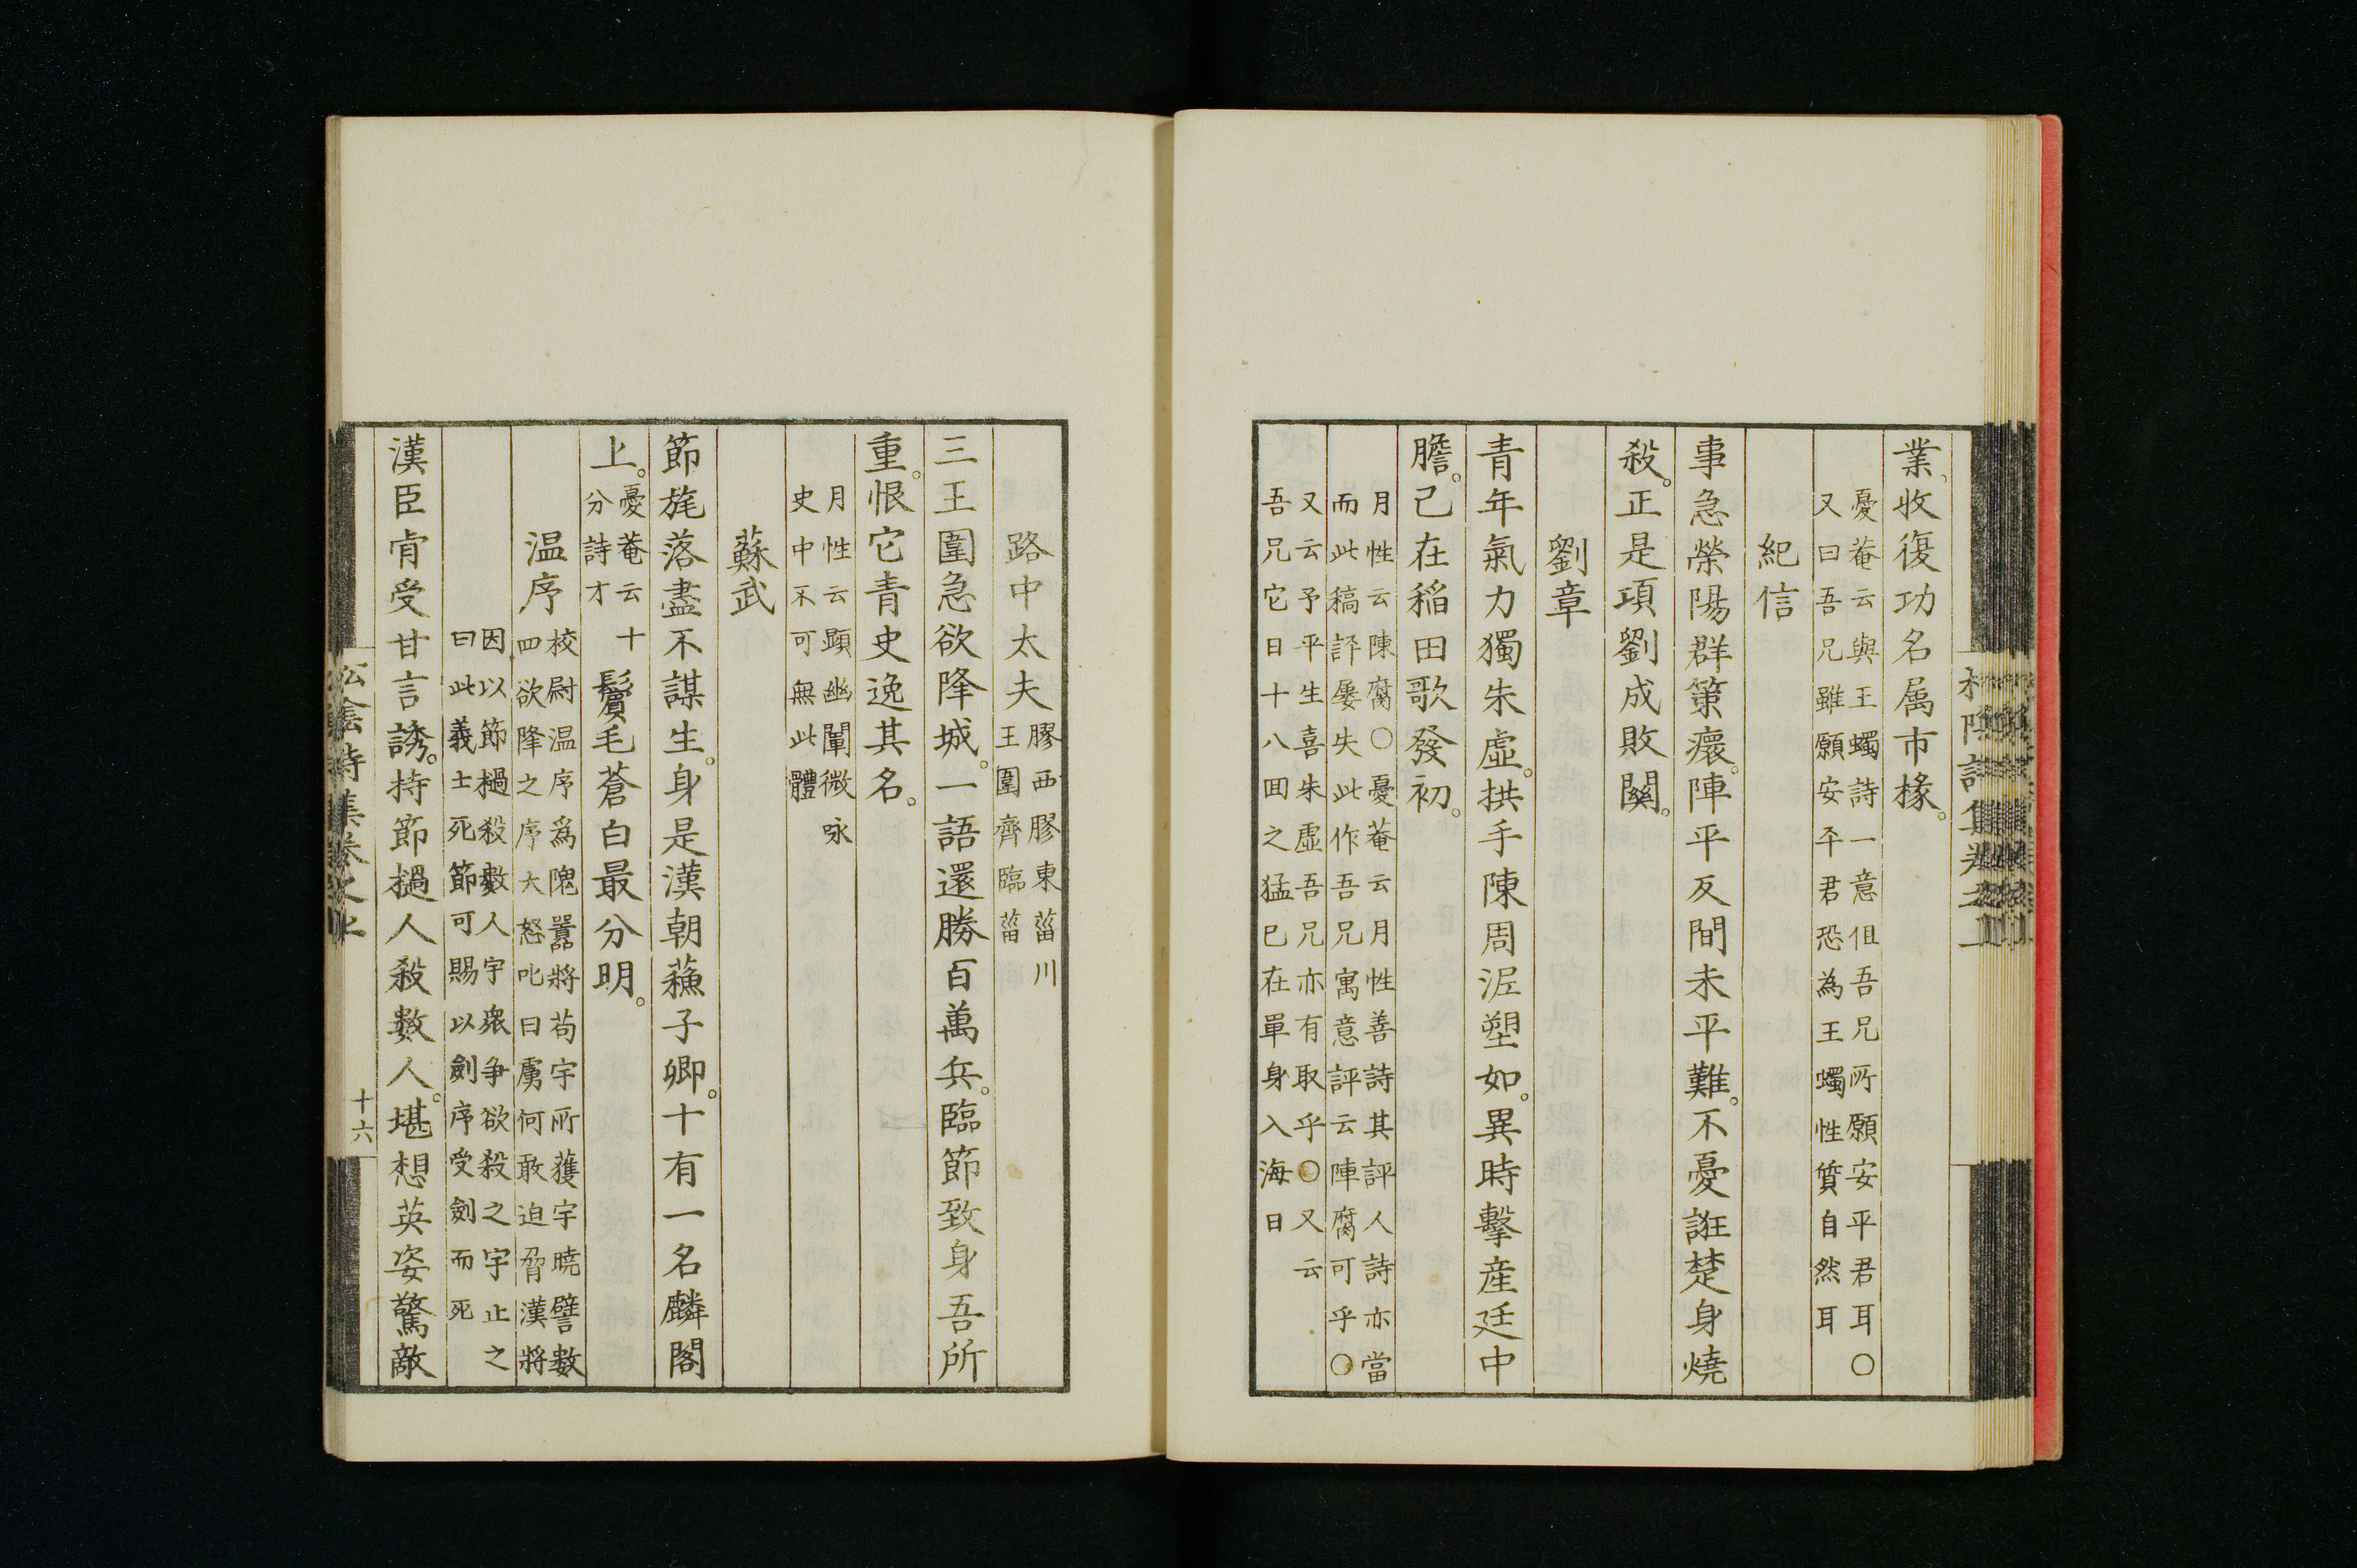 業、收復功名属市椽。
憂菴云與王蠋詩一意但吾兄所願安平君耳〇
又曰吾兄雖願安平君恐為王蠋性質自然耳
紀信
事急榮陽群策癏。陣平反間未平難。不憂誑楚身燒
殺。正是項劉成敗關。
劉章
青年氣力獨朱虛。拱手陳周泥塑如。異時擊産廷中
膽。己在稲田歌發初。
月性云陳腐〇憂菴云月性善詩其評人詩亦當
而此稿評屡失此作吾兄寓意評云陣腐可乎〇
又云予平生喜朱虛吾兄亦有取乎〇又云
吾兄它日十八囬之猛巳在單身入海日
路中太夫
膠西膠東菑川
王圍齊臨菑
三王圍急欲降城。一語還勝百萬兵。臨節致身吾所
重。恨它青史逸其名。
月性云顕幽闡微咏
史中不可無此體
蘇武
節旄落盡不謀生。身是漢朝蘓子卿。十有一名麟閣
上。
憂菴云十
分詩才
鬢毛蒼白最分明。
温序
校尉温序爲隗囂將苟宇所獲宇曉譬數
四欲降之序大怒叱曰虜何敢迫脅漢將
因以節檛殺數人宇衆争欲殺之宇止之
曰此義士死節可賜以劍序受劍而死
漢臣肯受甘言誘。持節檛人殺數人。堪想英姿驚敵
松陰詩集卷之上
十六